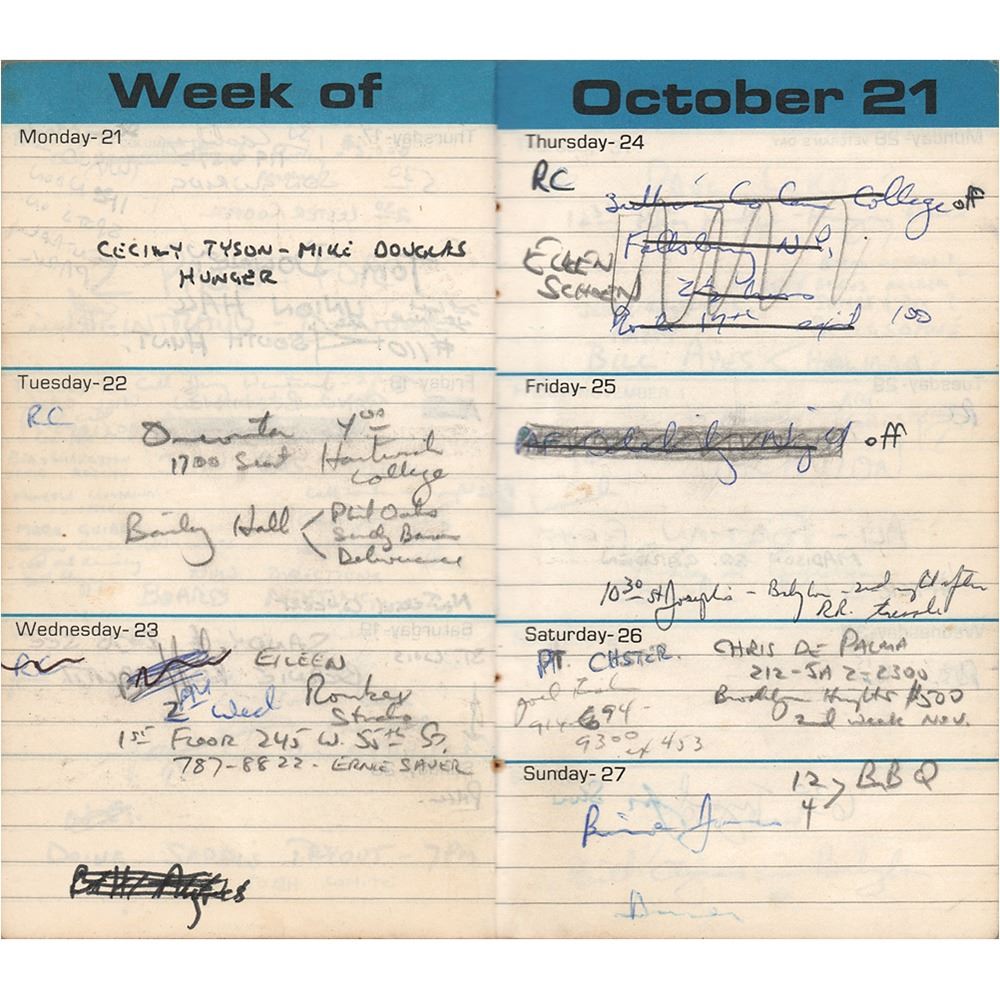 Week of
October 21
Monday-21
CECILY TYSON - MIKE DOUGLAS
HUNGER
Tuesday-22
RC
Oneonta 4 00
1700 Seat Hartwick
College
Baily Hall < Phil Ochs
Sandy
Deliverance
Wednesday-23
RC
EILEEN
2 PM Wed
1ST FLOOR 245 W. 55th St,
787-8822 - ERNIE SAVER
Thursday-24
RC
College off
Fallsburg N.Y.
EILEEN
2 1/2 hours
100
Friday-25
off
10 30 St Joseph's - Babylon - 2nd night after
R.R.
Saturday-26
PT. CHSTER.
CHRIS DE PALMA
212-SA 2-2300
Brooklyn Heights $500
914-694-
2nd week Nov.
9300 x 453
Sunday-27
12 > B B Q
4